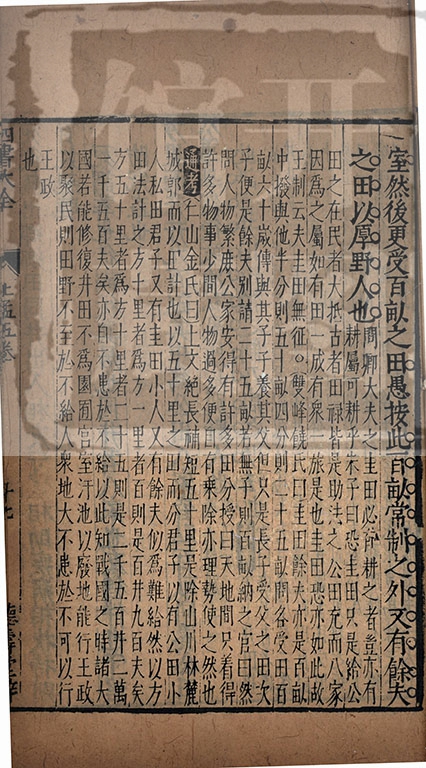 室然後更受百畝之田愚按此百畝常制之外又有餘夫
之田以厚野人也
問卿大夫之圭田必有耕之者豈亦有
耕屬可耕乎朱子曰恐圭田只是給公
田之在民者大抵古者田祿皆是助法之公田充而八家
因為之屬如有田一成有衆一旅是也圭田恐亦如此故
王制云夫圭田無征○雙峰饒氏曰圭田餘夫亦是百畝
中撥與他半分則五十畝四分則二十五畝問各受田百
畝六十歲傳與其子子養其父但只是長子受父之田次
子便是餘夫別請二十五畝若無子則百畝納之官曰然
問人物繁庶公家安得有許多田分授曰天地間只看得
許多物事少間人物過多便自有乗除亦理勢使之然也
通考仁山金氏曰上文絶長補短五十里是除山川林麓
城郭而以田計也以五十里之田而分君子以有公田小
人私田君子又有圭田小人又有餘夫似為難給然以方
田法計之方十里者為方一里者百則是百井九百夫矣
方五十里者為方十里者二十五則是二千五百井二萬
一千五百夫矣亦自不患於不給以此知戰國之時諸大
國若能修復井田不為園囿宮室汙池以廢地能行王政
以聚民則田野不至於不給人衆地大不患於不可以行
王政
也
四書大全
上孟五卷